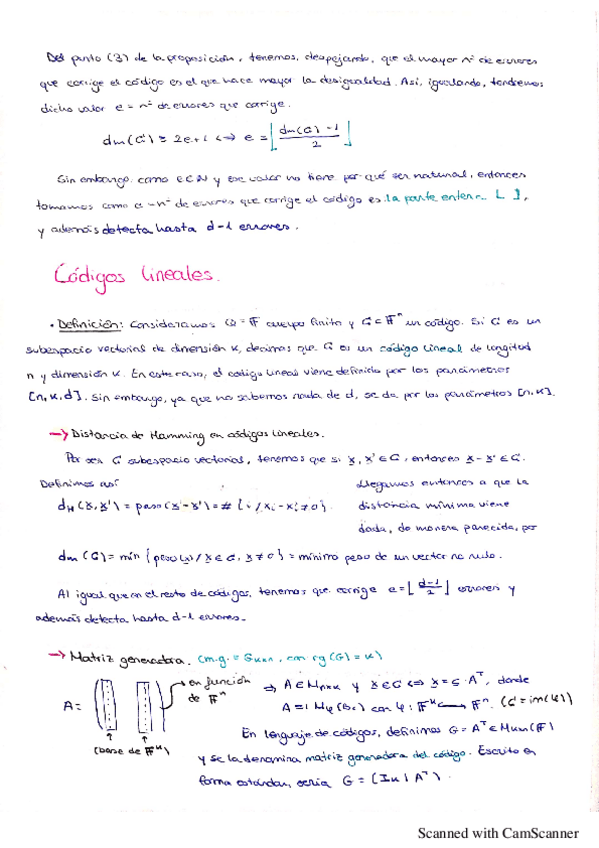 Del punto (3) de la proposición, tenemos, despejando, que el mayor nº de errores
que corrige el código es el que hace mayor la desigualdad. Así, igualando, tendremos
dicho valor e = nº de errores que corrige.
dm(C) = 2e+1 <=> e = ⌊(dm(C)-1)/2⌋
Sin embargo, como e∈N y ese valor no tiene por qué ser natural, entonces
tomamos como e = nº de errores que corrige el código es la parte entera ⌊ ⌋,
y además detecta hasta d-1 errores.
Códigos lineales.
· Definición: Consideramos 𝔽 cuerpo finito y C ⊂ 𝔽ⁿ un código. Si C es un
subespacio vectorial de dimensión k, decimos que C es un código lineal de longitud
n y dimensión k. En este caso, el código lineal viene definido por los parámetros
[n,k,d]. Sin embargo, ya que no sabemos nada de d, se da por los parámetros [n,k].
→ Distancia de Hamming en códigos lineales.
Por ser C subespacio vectorial, tenemos que si x, x' ∈ C, entonces x - x' ∈ C.
Definimos así
dH(x,x') = peso(x-x') = #{i / xi - xi' ≠ 0}.
Llegamos entonces a que la
distancia mínima viene
dada, de manera parecida, por
dm(C) = mín {peso(x) / x ∈ C, x ≠ 0} = mínimo peso de un vector no nulo.
Al igual que en el resto de códigos, tenemos que corrige e = ⌊(d-1)/2⌋ errores y
además detecta hasta d-1 errores.
→ Matriz generadora. (m.g. = Gkxn, con rg(G) = k)
A =
en función
de 𝔽ⁿ
(base de 𝔽ᵏ)
⇒ A ∈ Mnxk y x ∈ C <=> x = c · Aᵀ, donde
con φ: 𝔽ᵏ → 𝔽ⁿ. (C = im(φ))
En lenguaje de códigos, definimos G = Aᵀ ∈ Mkxn(𝔽)
y se la denomina matriz generadora del código. Escrito en
forma estándar, sería G = (Ik | Aᵀ).
Scanned with CamScanner